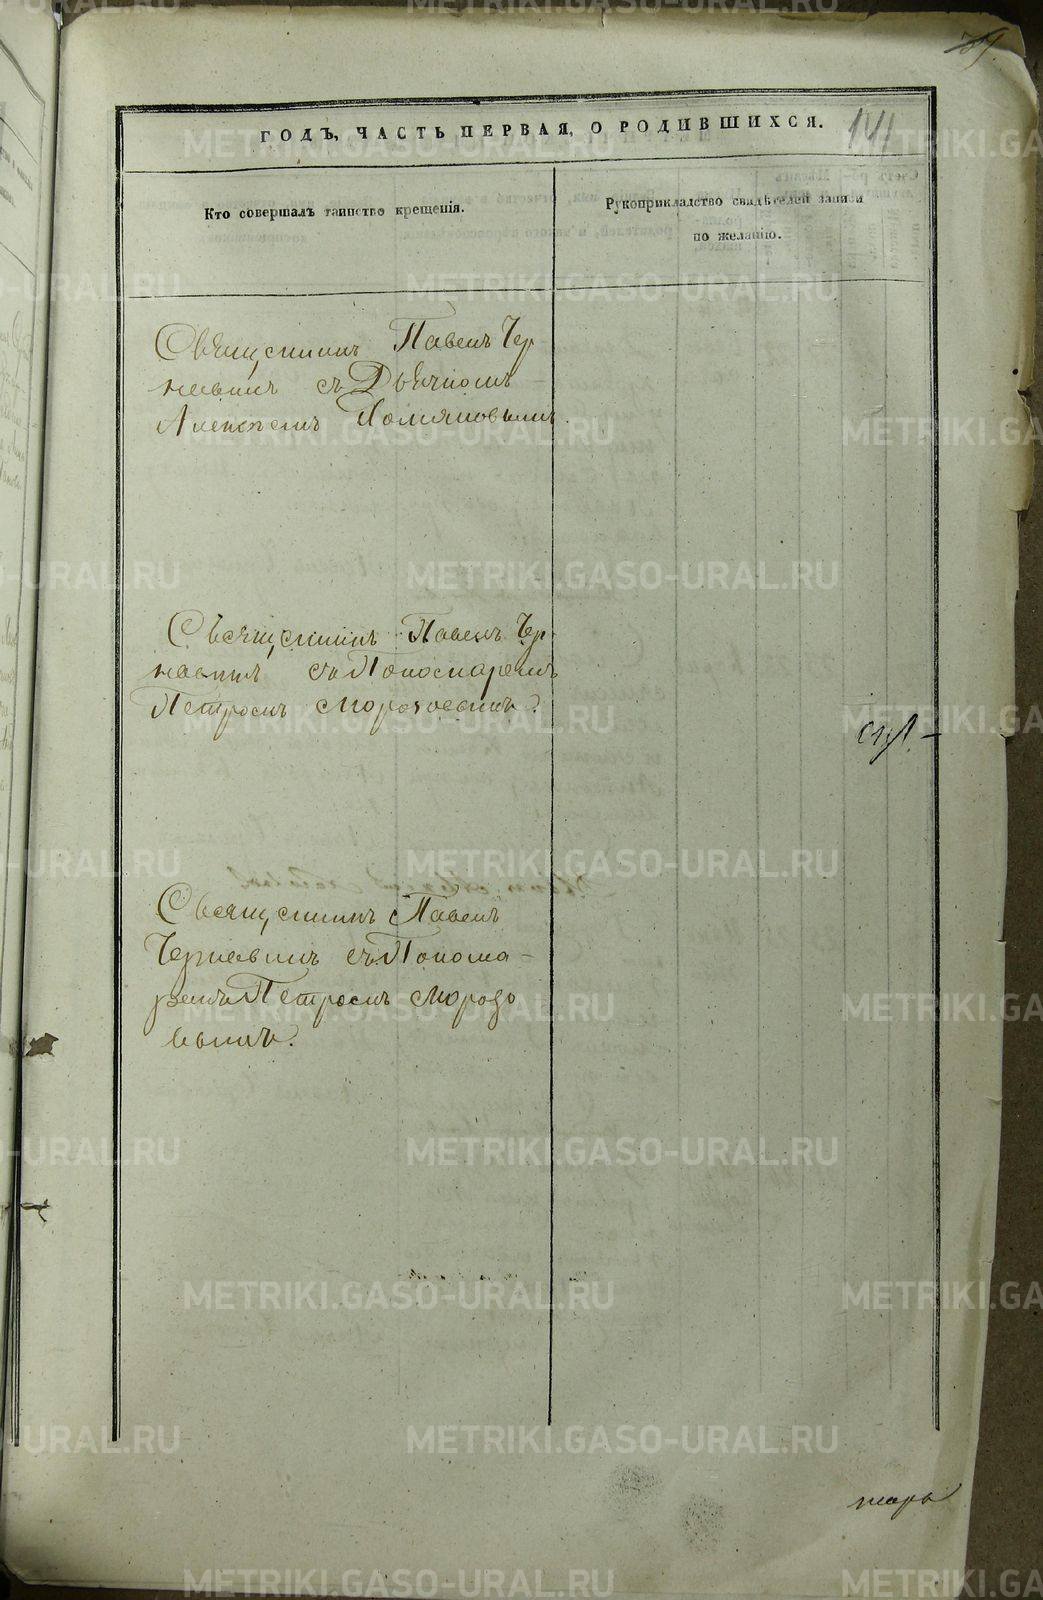 ГОДЪ, ЧАСТЬ ПЕРВАЯ, О РОДИВШИХСЯ.
Кто совершалъ таинство крещенія.
Рукоприкладство свидѣтелей записи
по желанію.
Священникъ Павелъ Чер
невинъ съ Дьячкомъ
Алексѣемъ
Священникъ Павелъ Чер-
невинъ съ Пономаремъ
Петромъ Морозовымъ.
Священникъ Павелъ
Черневинъ съ Понома-
ремъ Петромъ Морозо
вымъ.
METRIKI.GASO-URAL.RU